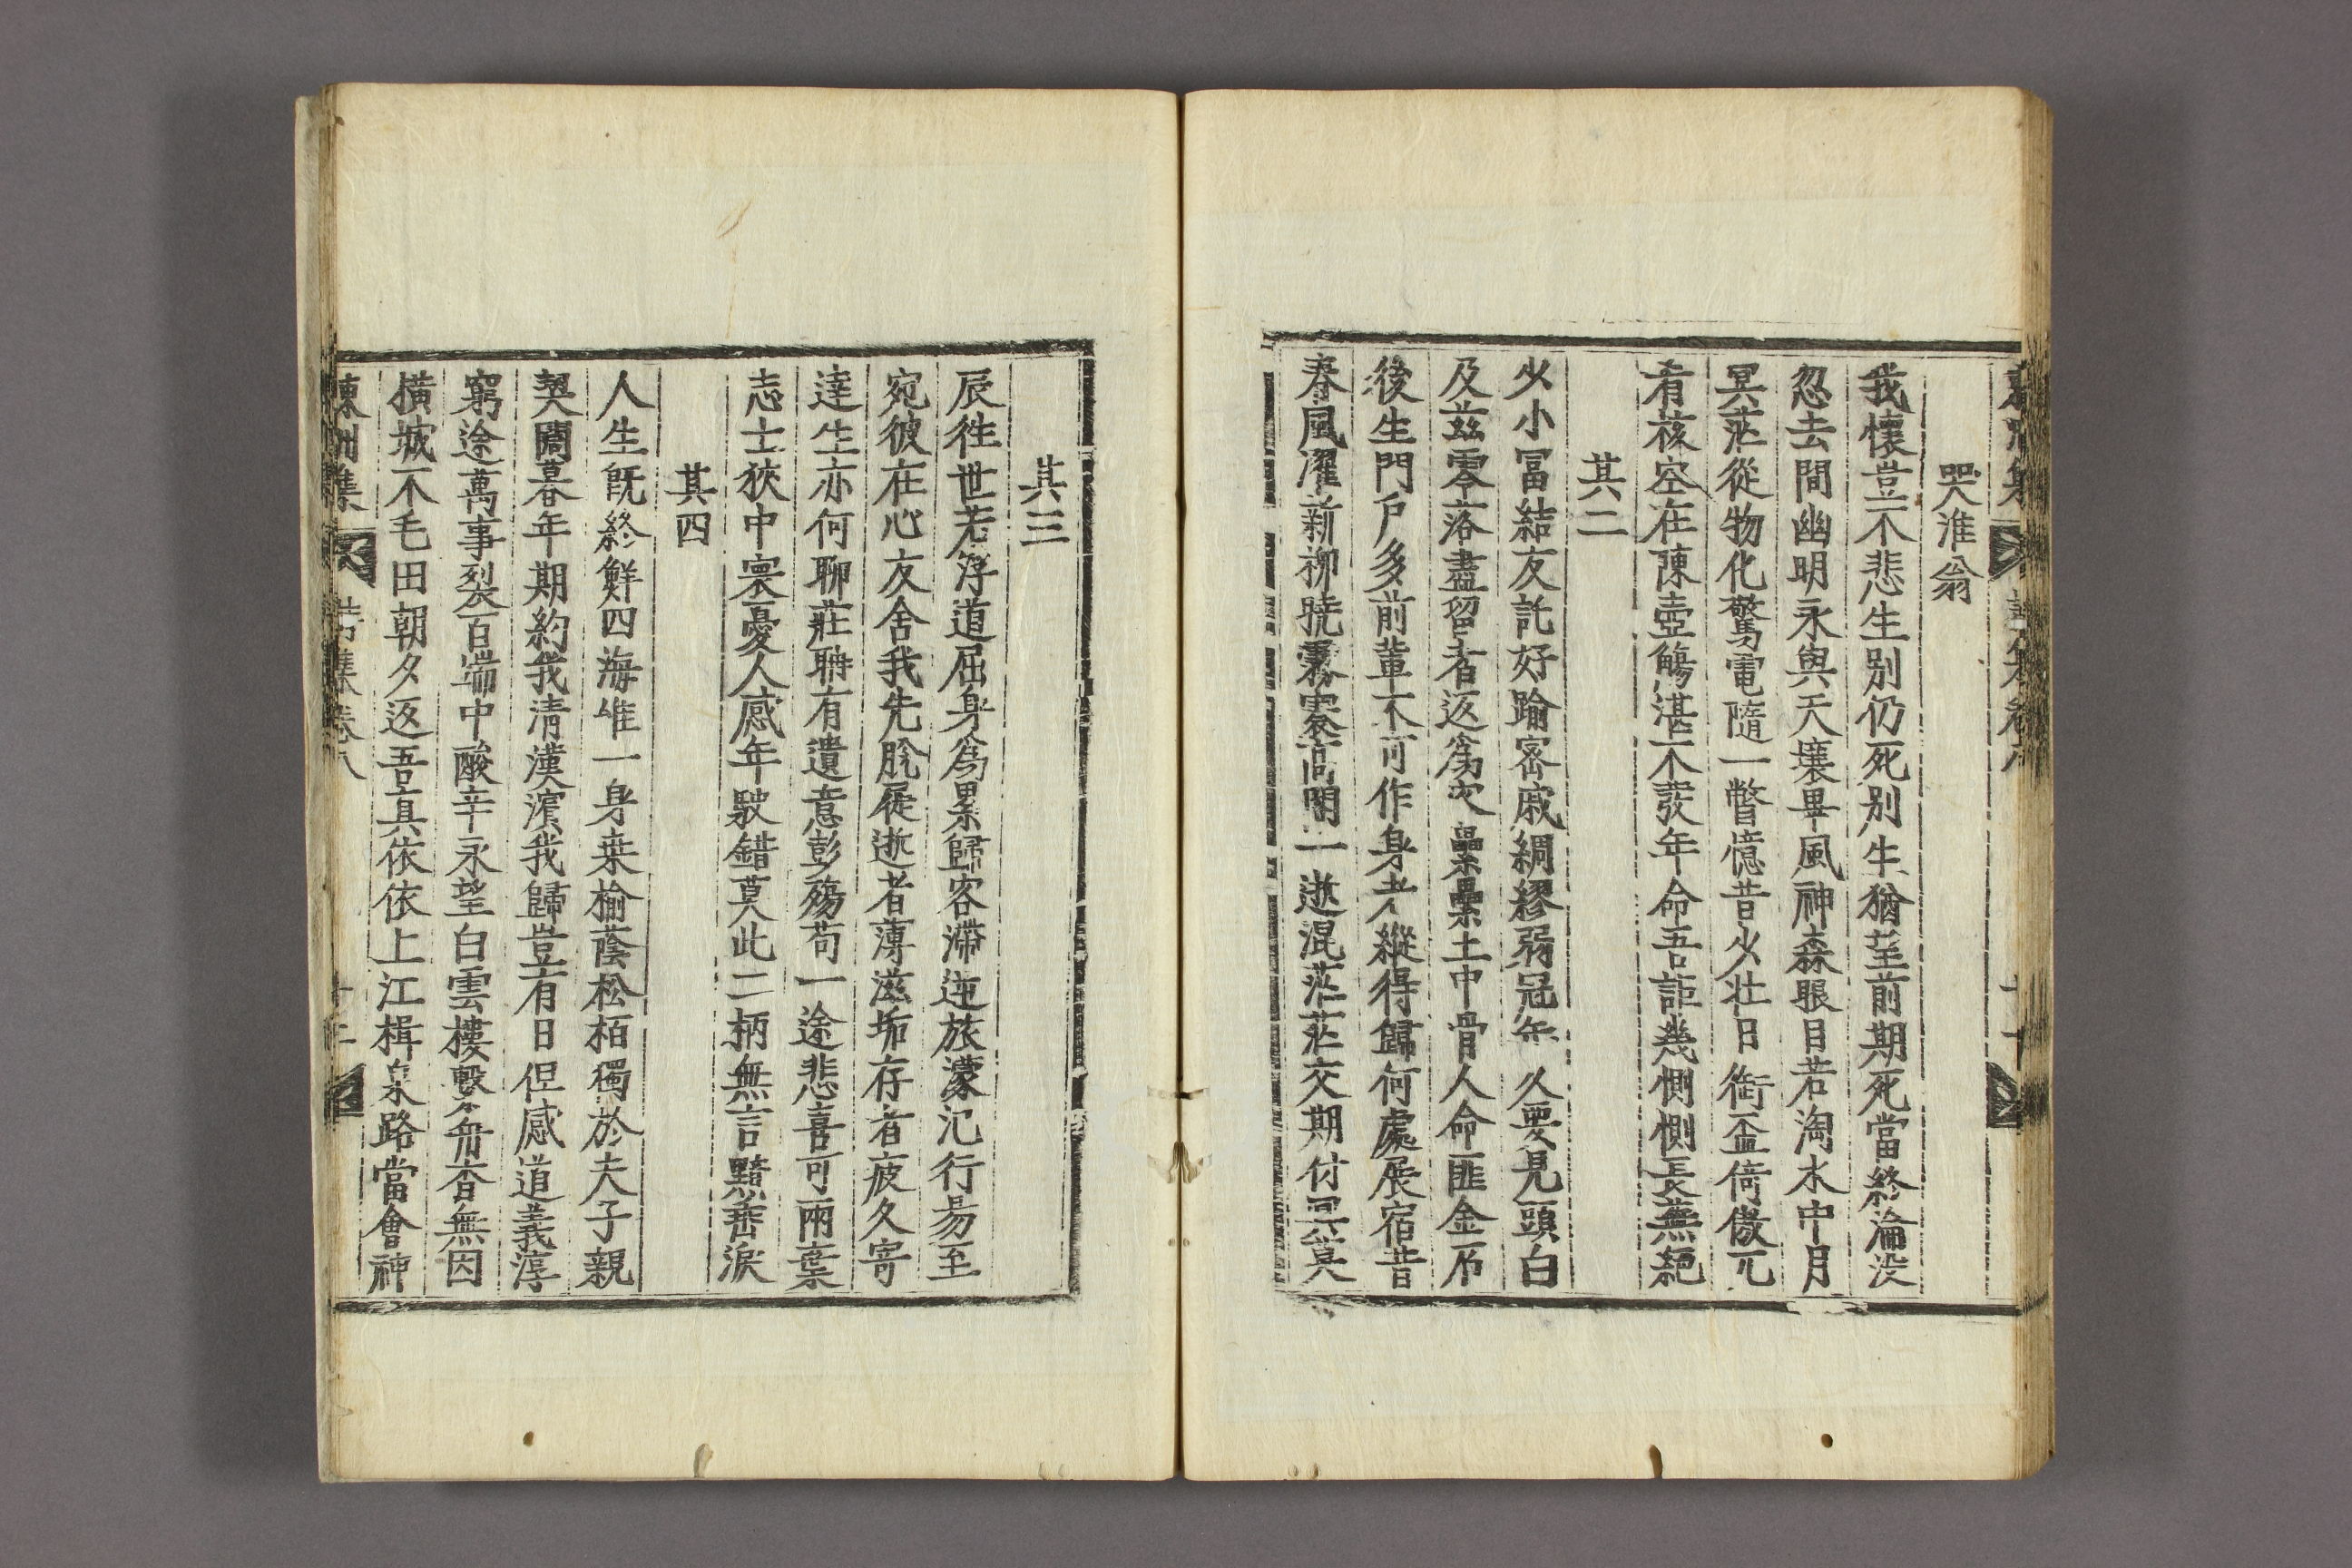 哭淮翁
我懷豈不悲生別仍死別生猶至前期死當終淪沒
忽去間幽明永與天壤畢風神森眼目若淘水中月
冥茫從物化驚電隨一瞥憶昔少壯日銜盃倚傲兀
肴核空在陳壺觴湛不發年命吾詎幾惻惻長無絕
其二
少小冨結友託好踰密戚綢繆弱冠年久要見頭白
及茲零落盡留者返爲次纍纍土中骨人命匪金石
後生門戶多前輩不可作身老縱得歸何處展宿昔
春風濯新柳曉霧褰高閣一逝混茫茫交期付冥莫
其三
辰徃世若浮道屈身爲累歸客滯逆旅濛汜行易至
宛彼在心友舍我先脫屣逝者薄滋垢存者疲久寄
達生亦何聊莊聃有遺意彭殤苟一途悲喜可兩棄
志士狹中寰憂人感年駛錯莫此二柄無言黯垂淚
其四
人生旣終鮮四海唯一身桒楡蔭松栢獨於夫子親
契闊暮年期約我清漢濱我歸豈有日但感道義淳
窮途萬事裂百端中酸辛永望白雲樓毄舟杳無因
橫城不毛田朝夕返吾眞依依上江楫泉路當會神
東州集
前集卷八
十二